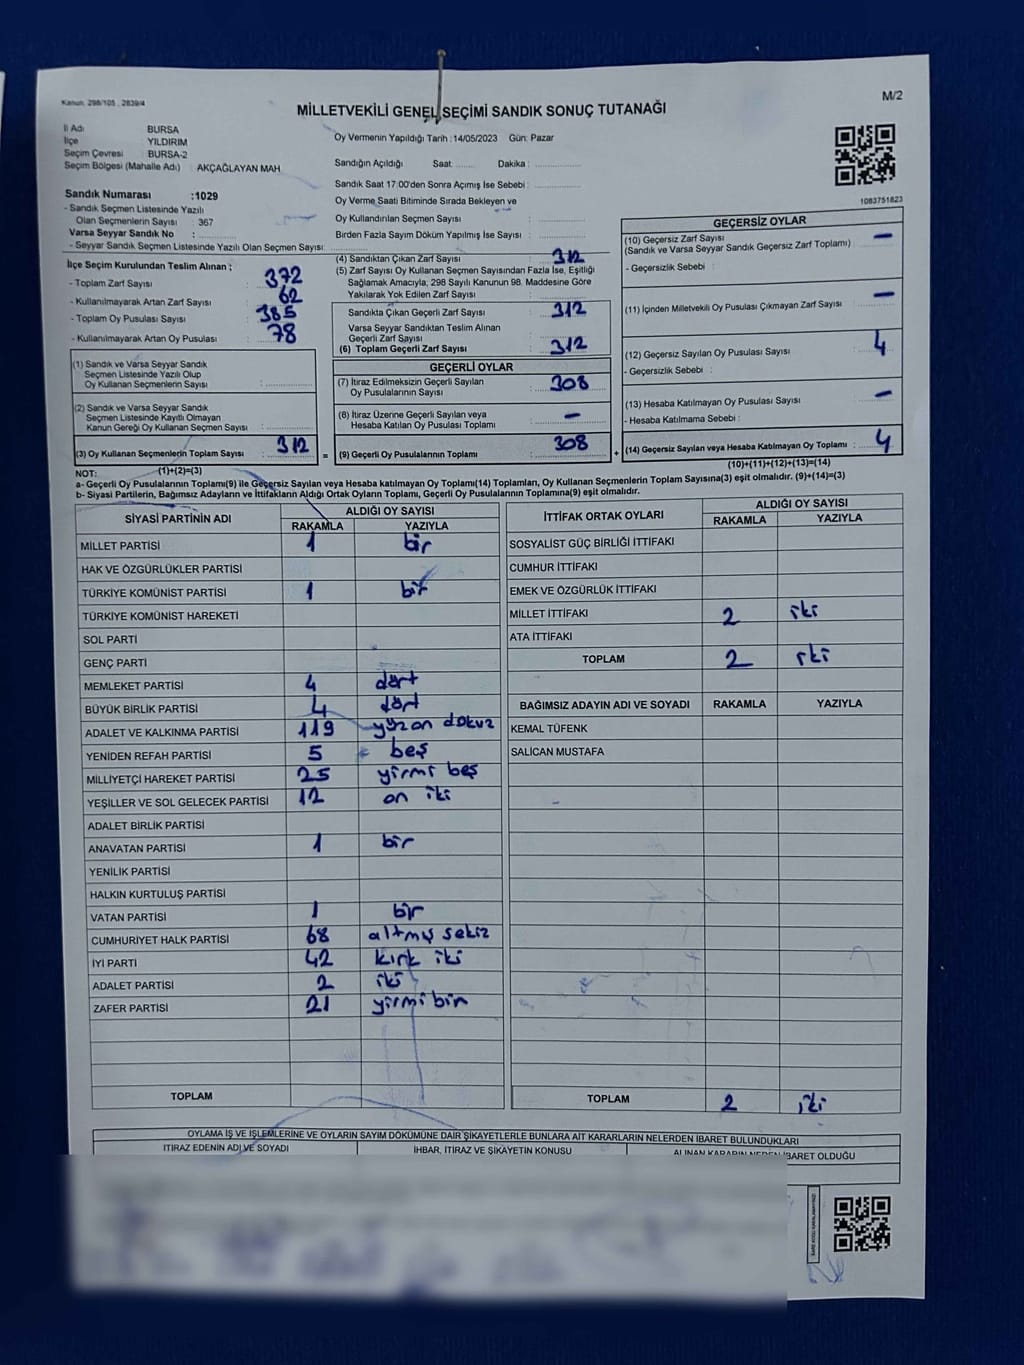 Kanun. 298/105 , 2839/4
M/2
MİLLETVEKİLİ GENEL SEÇİMİ SANDIK SONUÇ TUTANAĞI
İl Adı BURSA
İlçe YILDIRIM
Seçim Çevresi BURSA-2
Seçim Bölgesi (Mahalle Adı) : AKÇAĞLAYAN MAH
Sandık Numarası :1029
- Sandık Seçmen Listesinde Yazılı
Olan Seçmenlerin Sayısı : 367
Varsa Seyyar Sandık No :
- Seyyar Sandık Seçmen Listesinde Yazılı Olan Seçmen Sayısı:
Oy Vermenin Yapıldığı Tarih : 14/05/2023 Gün: Pazar
Sandığın Açıldığı Saat: Dakika :
Sandık Saat 17:00'den Sonra Açılmış İse Sebebi :
Oy Verme Saati Bitiminde Sırada Bekleyen ve
Oy Kullandırılan Seçmen Sayısı :
Birden Fazla Sayım Döküm Yapılmış İse Sayısı :
1083751823
İlçe Seçim Kurulundan Teslim Alınan ;
- Toplam Zarf Sayısı : 372
- Kullanılmayarak Artan Zarf Sayısı : 62
- Toplam Oy Pusulası Sayısı : 385
- Kullanılmayarak Artan Oy Pusulası : 78
(1) Sandık ve Varsa Seyyar Sandık
Seçmen Listesinde Yazılı Olup
Oy Kullanan Seçmenlerin Sayısı :
(2) Sandık ve Varsa Seyyar Sandık
Seçmen Listesinde Kayıtlı Olmayan
Kanun Gereği Oy Kullanan Seçmen Sayısı :
(3) Oy Kullanan Seçmenlerin Toplam Sayısı : 312
(1)+(2)=(3)
(4) Sandıktan Çıkan Zarf Sayısı : 312
(5) Zarf Sayısı Oy Kullanan Seçmen Sayısından Fazla İse, Eşitliği
Sağlamak Amacıyla; 298 Sayılı Kanunun 98. Maddesine Göre
Yakılarak Yok Edilen Zarf Sayısı :
Sandıkta Çıkan Geçerli Zarf Sayısı : 312
Varsa Seyyar Sandıktan Teslim Alınan
Geçerli Zarf Sayısı
(6) Toplam Geçerli Zarf Sayısı : 312
GEÇERLİ OYLAR
(7) İtiraz Edilmeksizin Geçerli Sayılan
Oy Pusulalarının Sayısı : 308
(8) İtiraz Üzerine Geçerli Sayılan veya
Hesaba Katılan Oy Pusulası Toplamı : —
= (9) Geçerli Oy Pusulalarının Toplamı : 308
GEÇERSİZ OYLAR
(10) Geçersiz Zarf Sayısı : —
(Sandık ve Varsa Seyyar Sandık Geçersiz Zarf Toplamı)
- Geçersizlik Sebebi :
(11) İçinden Milletvekili Oy Pusulası Çıkmayan Zarf Sayısı : —
(12) Geçersiz Sayılan Oy Pusulası Sayısı : 4
- Geçersizlik Sebebi :
(13) Hesaba Katılmayan Oy Pusulası Sayısı : —
- Hesaba Katılmama Sebebi :
+ (14) Geçersiz Sayılan veya Hesaba Katılmayan Oy Toplamı : 4
(10)+(11)+(12)+(13)=(14)
NOT:
a- Geçerli Oy Pusulalarının Toplamı(9) ile Geçersiz Sayılan veya Hesaba Katılmayan Oy Toplamı(14) Toplamları, Oy Kullanan Seçmenlerin Toplam Sayısına(3) eşit olmalıdır. (9)+(14)=(3)
b- Siyasi Partilerin, Bağımsız Adayların ve İttifakların Aldığı Ortak Oyların Toplamı, Geçerli Oy Pusulalarının Toplamına(9) eşit olmalıdır.
SİYASİ PARTİNİN ADI ALDIĞI OY SAYISI
RAKAMLA YAZIYLA
MİLLET PARTİSİ 1 bir
HAK VE ÖZGÜRLÜKLER PARTİSİ
TÜRKİYE KOMÜNİST PARTİSİ 1 bir
TÜRKİYE KOMÜNİST HAREKETİ
SOL PARTİ
GENÇ PARTİ
MEMLEKET PARTİSİ 4 dört
BÜYÜK BİRLİK PARTİSİ 4 dört
ADALET VE KALKINMA PARTİSİ 119 yüzon dokuz
YENİDEN REFAH PARTİSİ 5 beş
MİLLİYETÇİ HAREKET PARTİSİ 25 yirmi beş
YEŞİLLER VE SOL GELECEK PARTİSİ 12 on iki
ADALET BİRLİK PARTİSİ
ANAVATAN PARTİSİ 1 bir
YENİLİK PARTİSİ
HALKIN KURTULUŞ PARTİSİ
VATAN PARTİSİ 1 bir
CUMHURİYET HALK PARTİSİ 68 altmış sekiz
İYİ PARTİ 42 kırk iki
ADALET PARTİSİ 2 iki
ZAFER PARTİSİ 21 yirmi bir
TOPLAM
İTTİFAK ORTAK OYLARI ALDIĞI OY SAYISI
RAKAMLA YAZIYLA
SOSYALİST GÜÇ BİRLİĞİ İTTİFAKI
CUMHUR İTTİFAKI
EMEK VE ÖZGÜRLÜK İTTİFAKI
MİLLET İTTİFAKI 2 iki
ATA İTTİFAKI
TOPLAM 2 iki
BAĞIMSIZ ADAYIN ADI VE SOYADI RAKAMLA YAZIYLA
KEMAL TÜFENK
SALİCAN MUSTAFA
TOPLAM 2 iki
OYLAMA İŞ VE İŞLEMLERİNE VE OYLARIN SAYIM DÖKÜMÜNE DAİR ŞİKAYETLERLE BUNLARA AİT KARARLARIN NELERDEN İBARET BULUNDUKLARI
İTİRAZ EDENİN ADI VE SOYADI İHBAR, İTİRAZ VE ŞİKAYETİN KONUSU ALINAN KARARIN NEDEN İBARET OLDUĞU